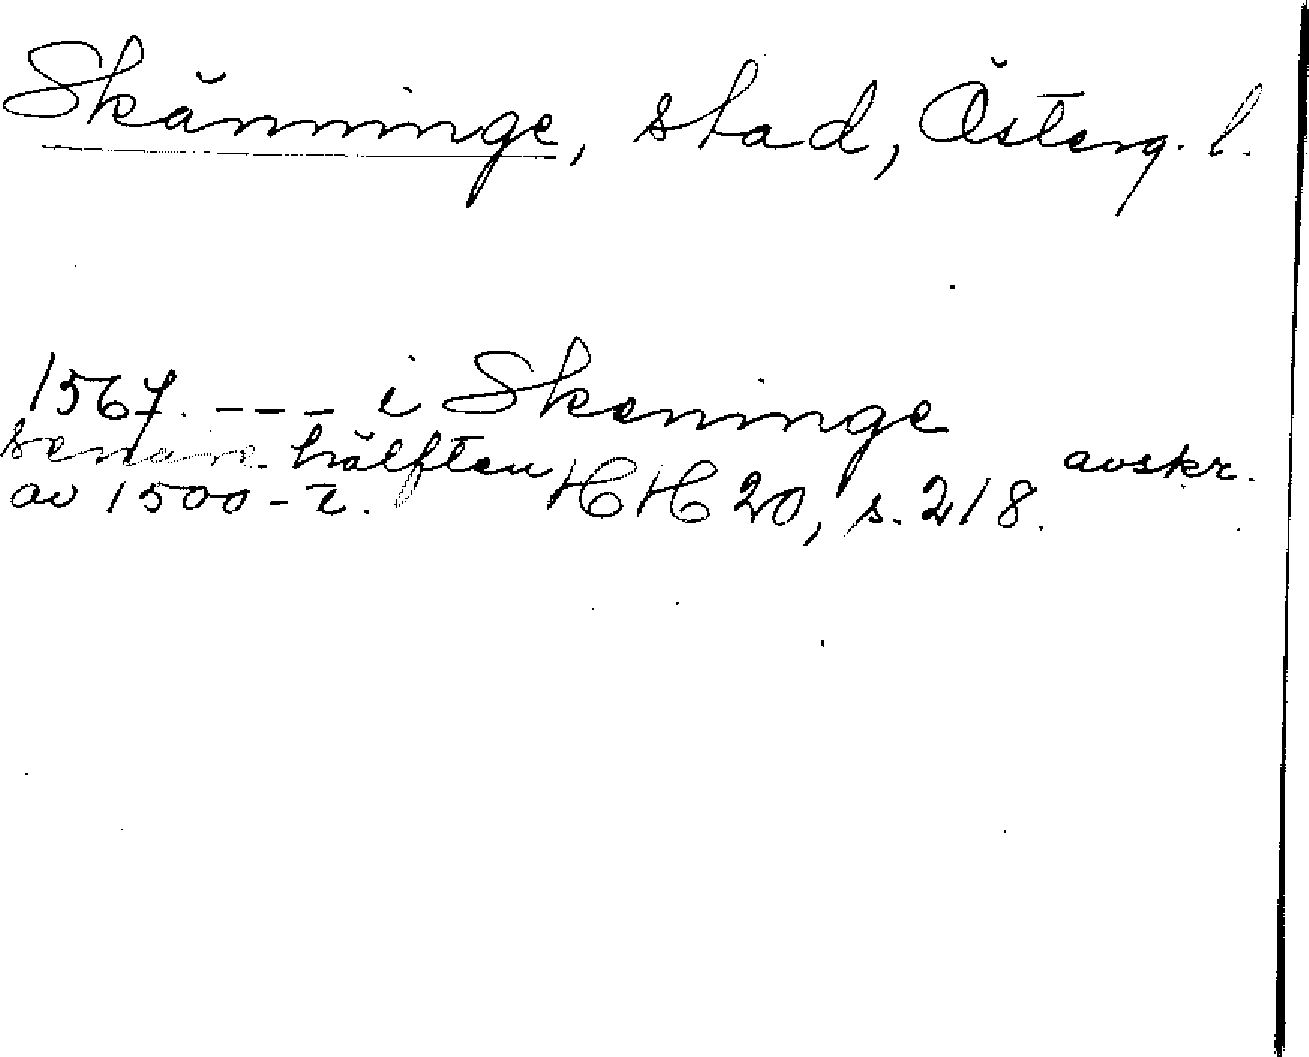 Skänninge, stad, Österg. l.
1567. --- i Skeninge
senare hälften HH 20, s. 218. avskr.
av 1500-t.